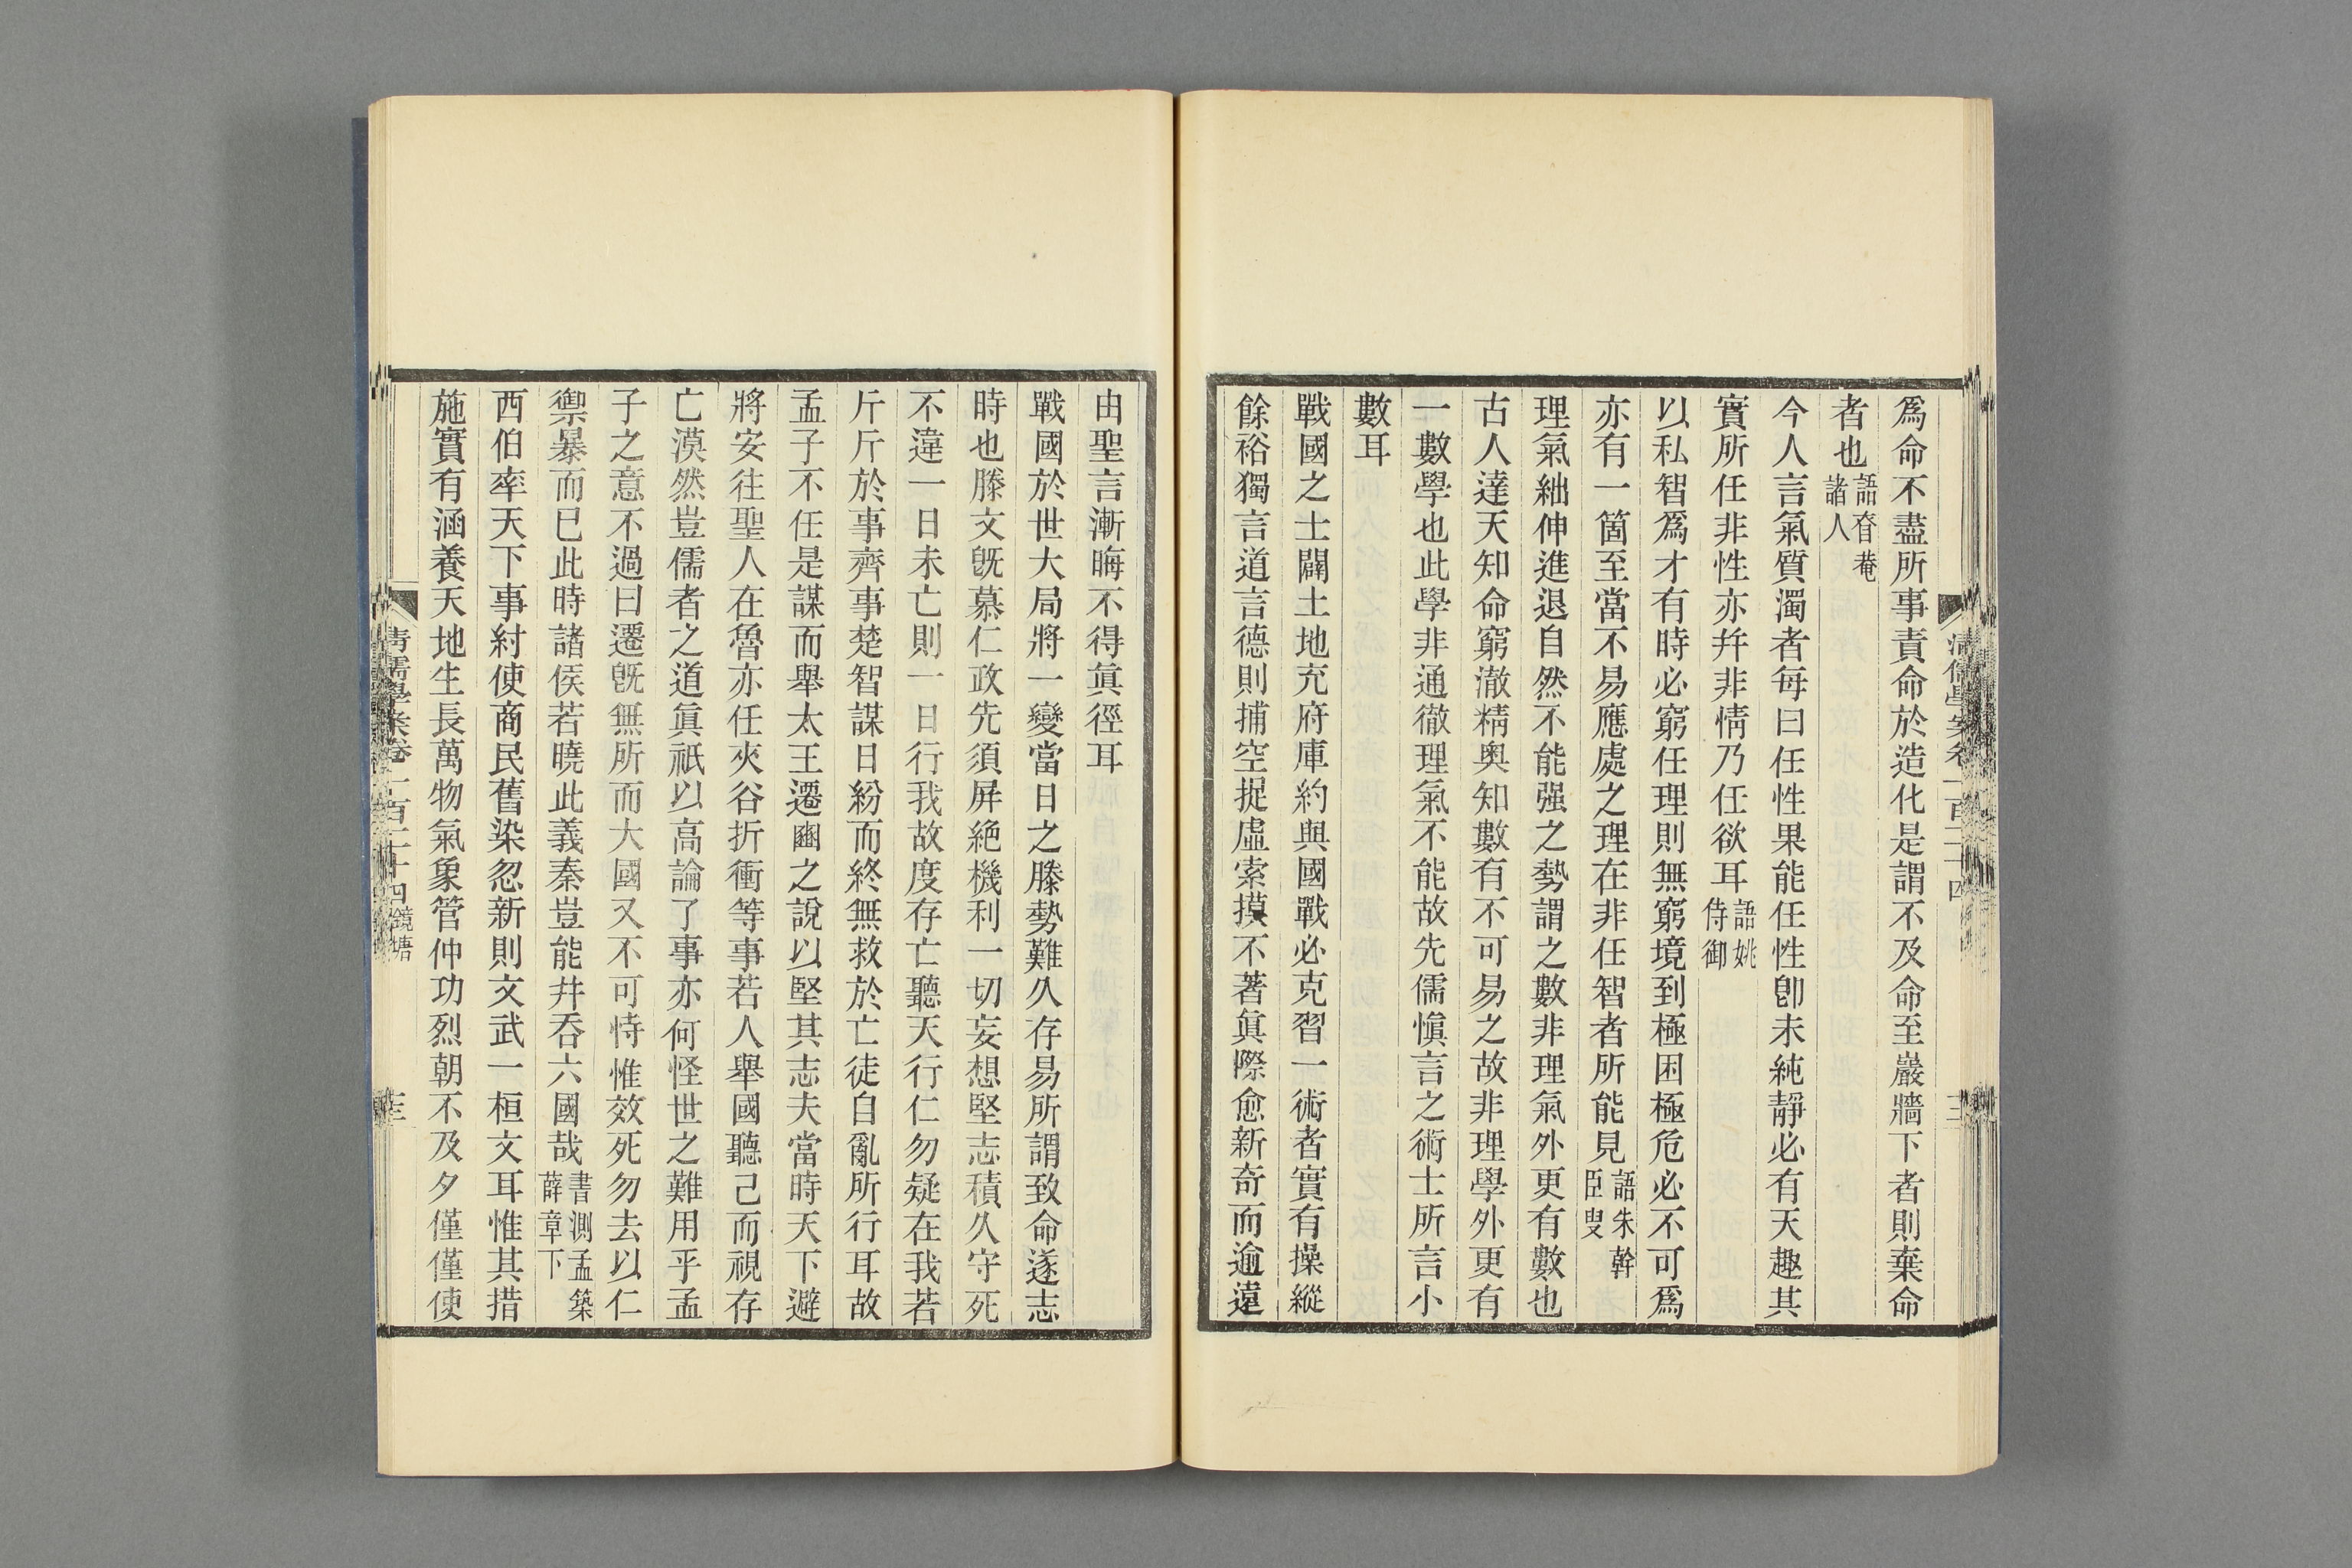 爲命不盡所事責命於造化是謂不及命至巖牆下者則棄命
者也語昚菴諸人
今人言氣質濁者每曰任性果能任性卽未純靜必有天趣其
實所任非性亦幷非情乃任欲耳語姚侍御
以私智爲才有時必窮任理則無窮境到極困極危必不可爲
亦有一箇至當不易應處之理在非任智者所能見語朱幹臣叟
理氣絀伸進退自然不能强之勢謂之數非理氣外更有數也
古人達天知命窮澈精奧知數有不可易之故非理學外更有
一數學也此學非通徹理氣不能故先儒愼言之術士所言小
數耳
戰國之士闢土地充府庫約與國戰必克習一術者實有操縱
餘裕獨言道言德則捕空捉虛索摸不著眞際愈新奇而逾遠
由聖言漸晦不得眞徑耳
戰國於世大局將一變當日之滕勢難久存易所謂致命遂志
時也滕文旣慕仁政先須屏絶機利一切妄想堅志積久守死
不違一日未亡則一日行我故度存亡聽天行仁勿疑在我若
斤斤於事齊事楚智謀日紛而終無救於亡徒自亂所行耳故
孟子不任是謀而舉太王遷豳之說以堅其志夫當時天下避
將安往聖人在魯亦任夾谷折衝等事若人舉國聽己而視存
亡漠然豈儒者之道眞祇以高論了事亦何怪世之難用乎孟
子之意不過曰遷旣無所而大國又不可恃惟效死勿去以仁
禦暴而已此時諸侯若曉此義秦豈能幷吞六國哉書測孟築薛章下
西伯率天下事紂使商民舊染忽新則文武一桓文耳惟其措
施實有涵養天地生長萬物氣象管仲功烈朝不及夕僅僅使
清儒學案卷一百二十四鏡塘